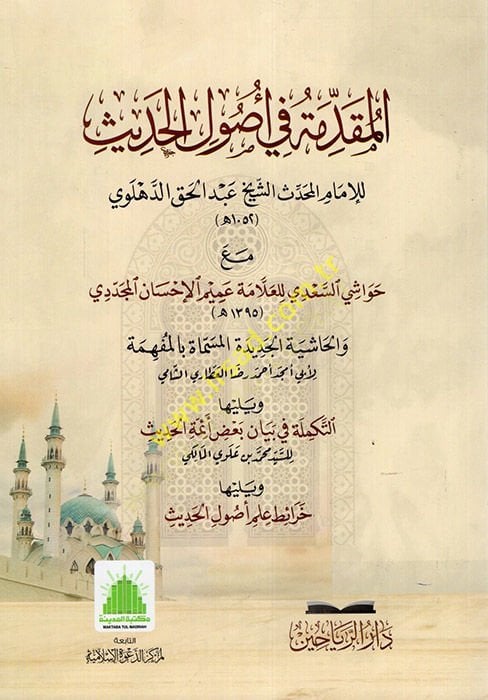 المُقَدِّمَةُ فِي أُصُولِ الحَدِيثِ
للإمام المحدث الشيخ عبد الحق الدهلوي
(١٠٥٢هـ)
مَعَ
حَوَاشِي السَّعْدِي للعَلَّامَة عَمِيْمِ الإِحْسَان المجَدِّدِي
(١٣٩٥هـ)
والحاشية الجديدة المسماة بالمُفهِمَة
لأبي أمجد أحمد رضا العطاري الشامي
ويليها
التكملة في بيان بعض أئمة الحديث
للسيد محمد بن علوي المالكي
ويليها
خَرائط عِلم أُصُولِ الحَدِيثِ
مكتبة المدينة
MAKTABA TUL MADINAH
التابعة
لمركز الدعوة الإسلامية
دار الرياحين